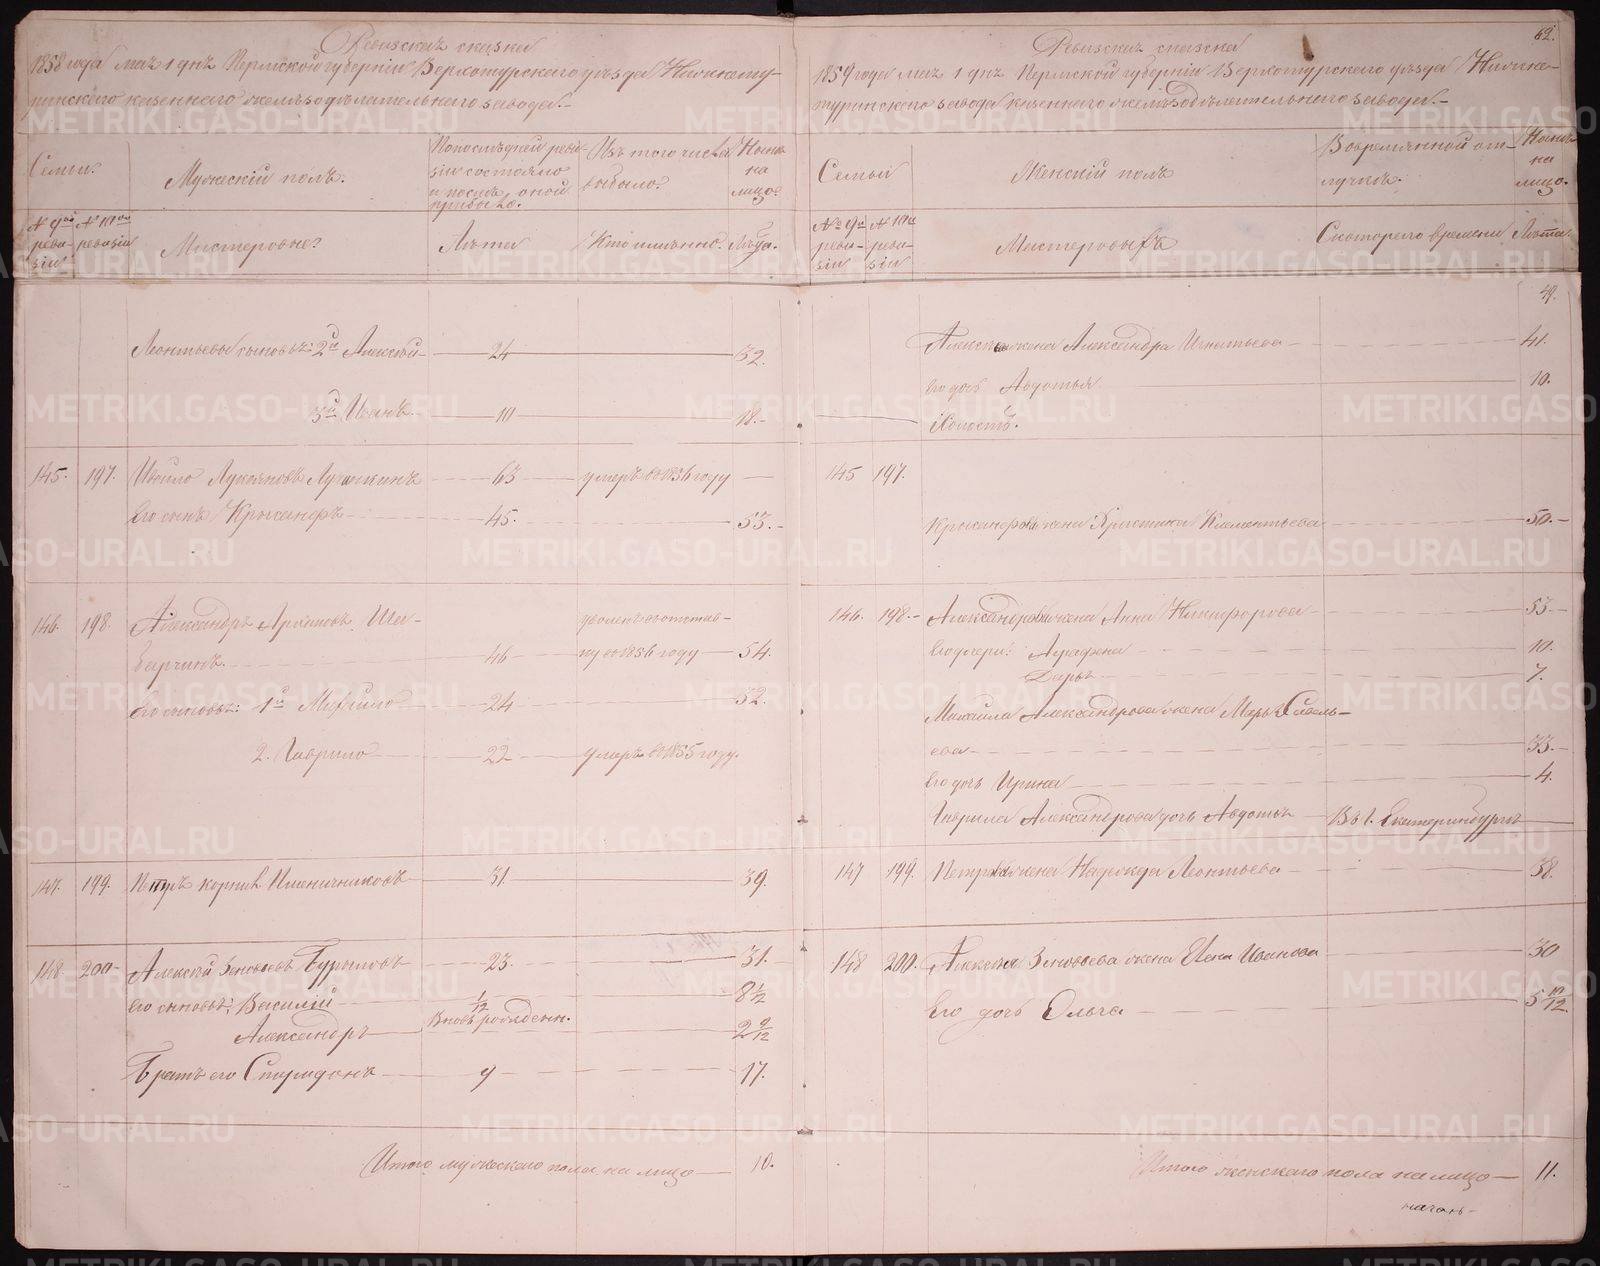 Ревизская сказка
1858 года мая 1 дня Пермской губерніи Верхотурского уѣзда Нижнету-
ринского казеннаго желѣзодѣлательнаго завода.-
Семьи.
Мужескій полъ.
По последней реви-
зіи состояло
и послѣ оной
прибыло.
Изъ того числа
выбыло.
Нынѣ
на
лицо.
№ 9ой
реви-
зіи
№ 10ой
ревизіи
Мастеровые
Лѣта
Кто именно.
Лѣта.
Леонтьева сыновья: 2й Алексѣй 24 32.
3й Иванъ 10 18.-
145. 197. Лукояновъ Лучинкинъ 63 умеръ въ 1856 году —
Его сынъ Крысанфъ 45. 53.-
146. 198. Александръ Архиповъ Ша- уволенъ въ отстав-
барчинъ. 46 ку въ 1856 году 54.
Его сыновья: 1й Михайло 24 32.
2. Гаврило 22 умеръ въ 1855 году.
147. 199. Петръ Пшеничниковъ 31. 39.
148. 200 Алексѣй Зеновьевъ Бурылов 23. 31.
Его сыновья: Василій 1/12 8 1/2
Александръ Вновь рожденн. 2 9/12
Братъ его Спиридонъ 9 17.
Итого мужескаго пола на лицо 10.
62.
Ревизская сказка
1859 года мая 1 дня Пермской губерніи Верхотурского уѣзда Нижне-
туринского завода казеннаго желѣзодѣлательнаго завода.-
Семьи
Женскій полъ
Во временной от-
лучкѣ.
Нынѣ
на
лицо.
№ 9й
реви-
зіи
№ 10й
реви-
зіи
Мастеровыхъ
Съ котораго времени
Лѣта.
49.
жена Александра Игнатьева 41.
Его дочь Авдотья 10.
Холостъ.
145 197.
Крысанфова жена Христина Клементьева 50.-
146. 198.- Александрова жена Анна Никифорова 53
Его дочери: Аграфена 10.
Дарья 7.
Михаила Александрова жена Марья Савель-
ева 33.-
Его дочь Ирина 4.
Гаврила Александрова дочь Авдотья Въ г. Екатеринбургѣ
147 199. Петрова жена Надежда Леонтьева 38.
148 200. Алексѣя Зеновьева жена Елена Иванова 30
Его дочь Ольга 5 10/12.
Итого женскаго пола на лицо 11.